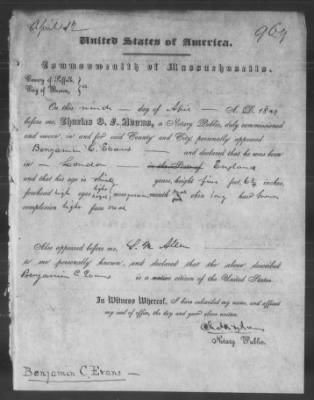 April 12
969
United States of America.
Commonwealth of Massachusetts.
County of Suffolk
City of Boston, } ss
On this ninth day of April A. D. 18
before me, Charles B. F. Adams, a Notary Public, duly commissioned
and sworn in and for said County and City, personally appeared
Benjamin C. Evans and declared that he was born
in London in the State of England
and that his age is years, height five feet, 6½ inches,
forehead high eyes light nose mouth chin long hair brown
complexion light face oval
Also appeared before me, S. M. Allen
to me personally known, and declared that the above described
Benjamin C. Evans is a native citizen of the United States.
In Witness Whereof, I have subscribed my name, and affixed
my seal of office, the day and year above written.
Notary Public.
Benjamin C. Evans